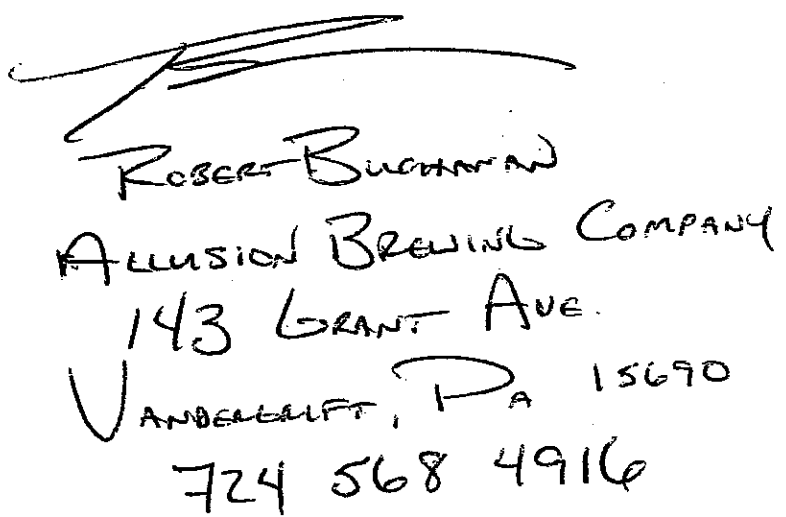 Robert Buchanan
Allusion Brewing Company
143 Grant Ave.
Vandergrift, Pa 15690
724 568 4916